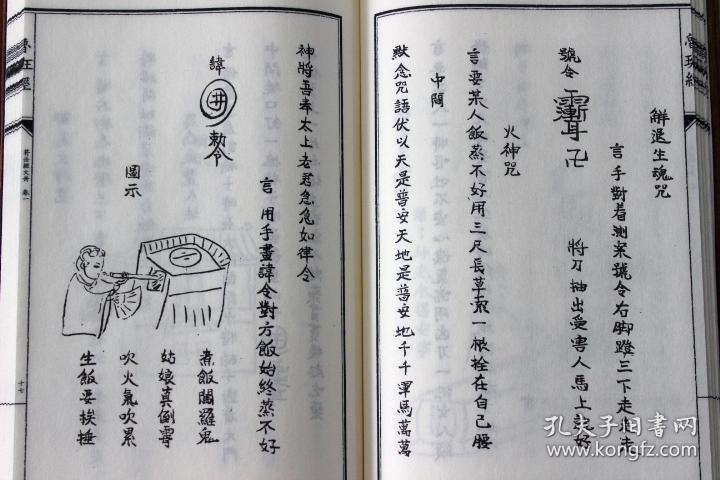 魯班經
解退生魂咒
言手對着測案號令右脚蹬三下走
將刀抽出受害人馬上
好
號令
卍
火神咒
言要某人飯蒸不好用三尺長草
一根拴在自己腰
中間
默念咒語伏以天是普安天地是普安地千千軍馬萬萬
神將吾奉太上老君急急如律令
言用手畫諱令對方飯始終蒸不好
諱
井
勅令
圖示
煮飯閻羅鬼
姑娘真倒霉
吹火氣吹累
生飯要挨捶
魯班經
卷一
十七
孔夫子旧书网
www.kongfz.com